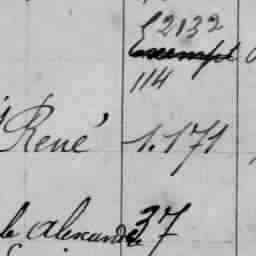 E 2132
Exempt
114
René 1.171
le Alexandre 37